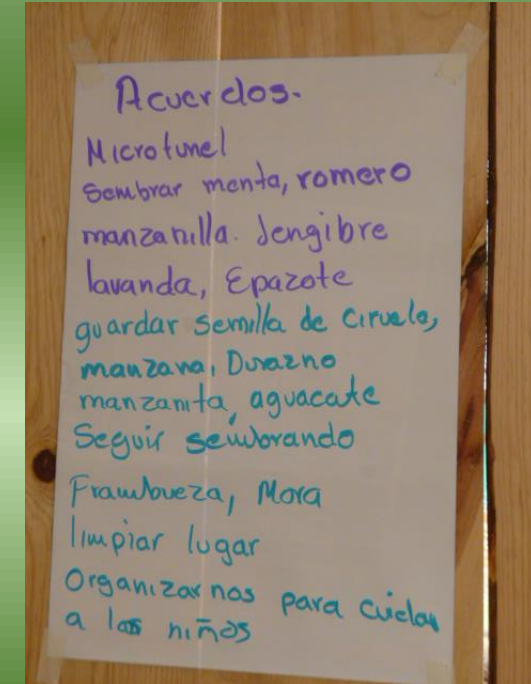 Acuerdos.
Microtunel
Sembrar menta, romero
manzanilla. Jengibre
lavanda, Epazote
guardar semilla de ciruelo,
manzana, Durazno
manzanita, aguacate
Seguir sembrando
Frambueza, Mora
limpiar lugar
Organizarnos para cuidar
a los niños